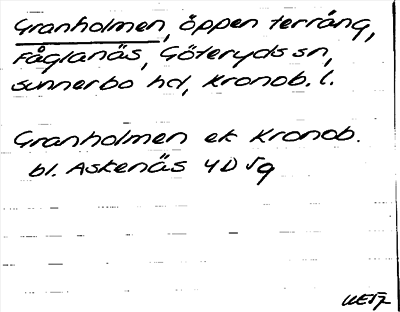 Granholmen, öppen terräng,
Fåglanäs, Göteryds sn,
Sunnerbo hd, Kronob. l.
Granholmen ek Kronob.
bl. Askenäs 4D